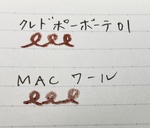 クレドポーボーテ 01
MAC ワール